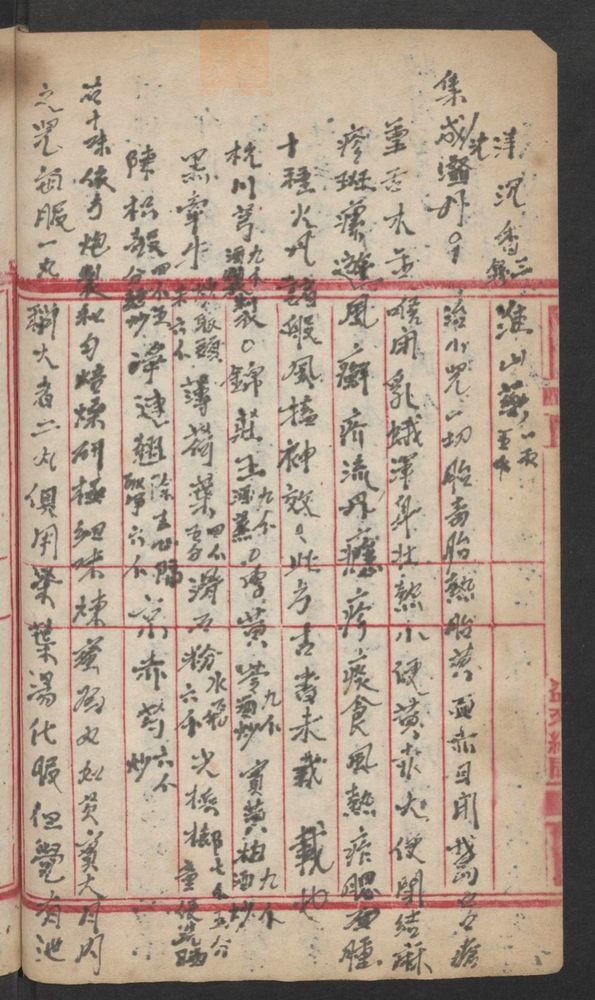 洋沉香三錢 淮山藥一兩五錢
集成沆瀣丹 治小兒一切胎毒胎熱胎黃面赤目閉鵞口口瘡
重舌木舌喉閉乳蛾渾身壯熱小便黃赤大便閉結麻
疹斑瘰遊風癬疥流丹癮疹痰食風熱痄腮面腫
十種火丹諸般風搐神效此方古書未載 載也
杭川芎九錢酒製 錦莊王九錢酒蒸 淨黃芩九錢酒炒 實黃柏九錢酒炒
黑牽牛炒取頭末六錢 薄荷葉四錢五分 滑石粉水飛六錢 尖檳榔七錢五分童便洗晒
陳枳殼四錢五分麩炒 淨連翹除去心隔取淨六錢 京赤芍六錢炒
前十味依方炮製和勻焙燥研極細末煉蜜爲丸如芡實大月內
之兒每服一丸稍大者二丸俱用葉湯化服但覺有池